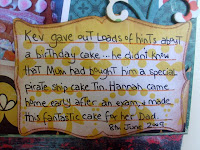 Kev gave out loads of hints about
a birthday cake... he didnt know
that Mum had bought him a special
pirate ship cake tin. Hannah came
home early after an exam & made
this fantastic cake for her Dad.
8th June 2009